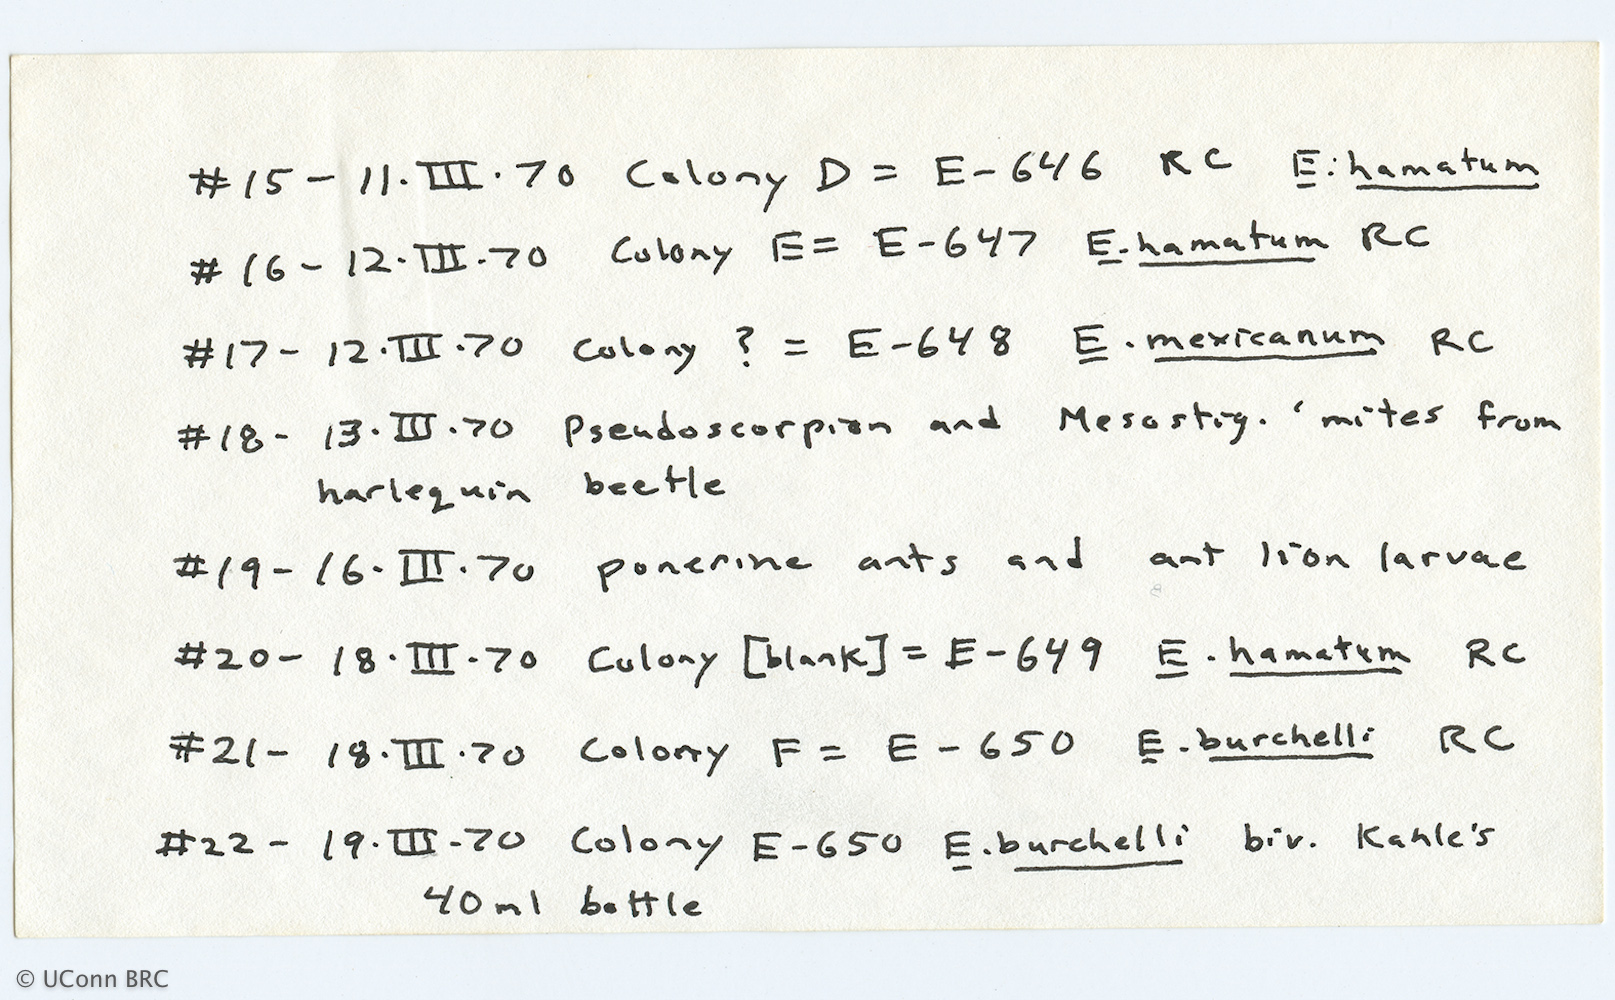 #15 - 11.III.70 Colony D = E-646 RC E. hamatum
#16 - 12.III.70 Colony E = E-647 E. hamatum RC
#17 - 12.III.70 Colony ? = E-648 E. mexicanum RC
#18 - 13.III.70 Pseudoscorpion and Mesostig. ' mites from
harlequin beetle
#19 - 16.III.70 ponerine ants and ant lion larvae
#20 - 18.III.70 Colony [blank] = E-649 E. hamatum RC
#21 - 18.III.70 Colony F = E-650 E. burchelli RC
#22 - 19.III.70 Colony E-650 E. burchelli biv. Kahle's
40ml bottle
© UConn BRC